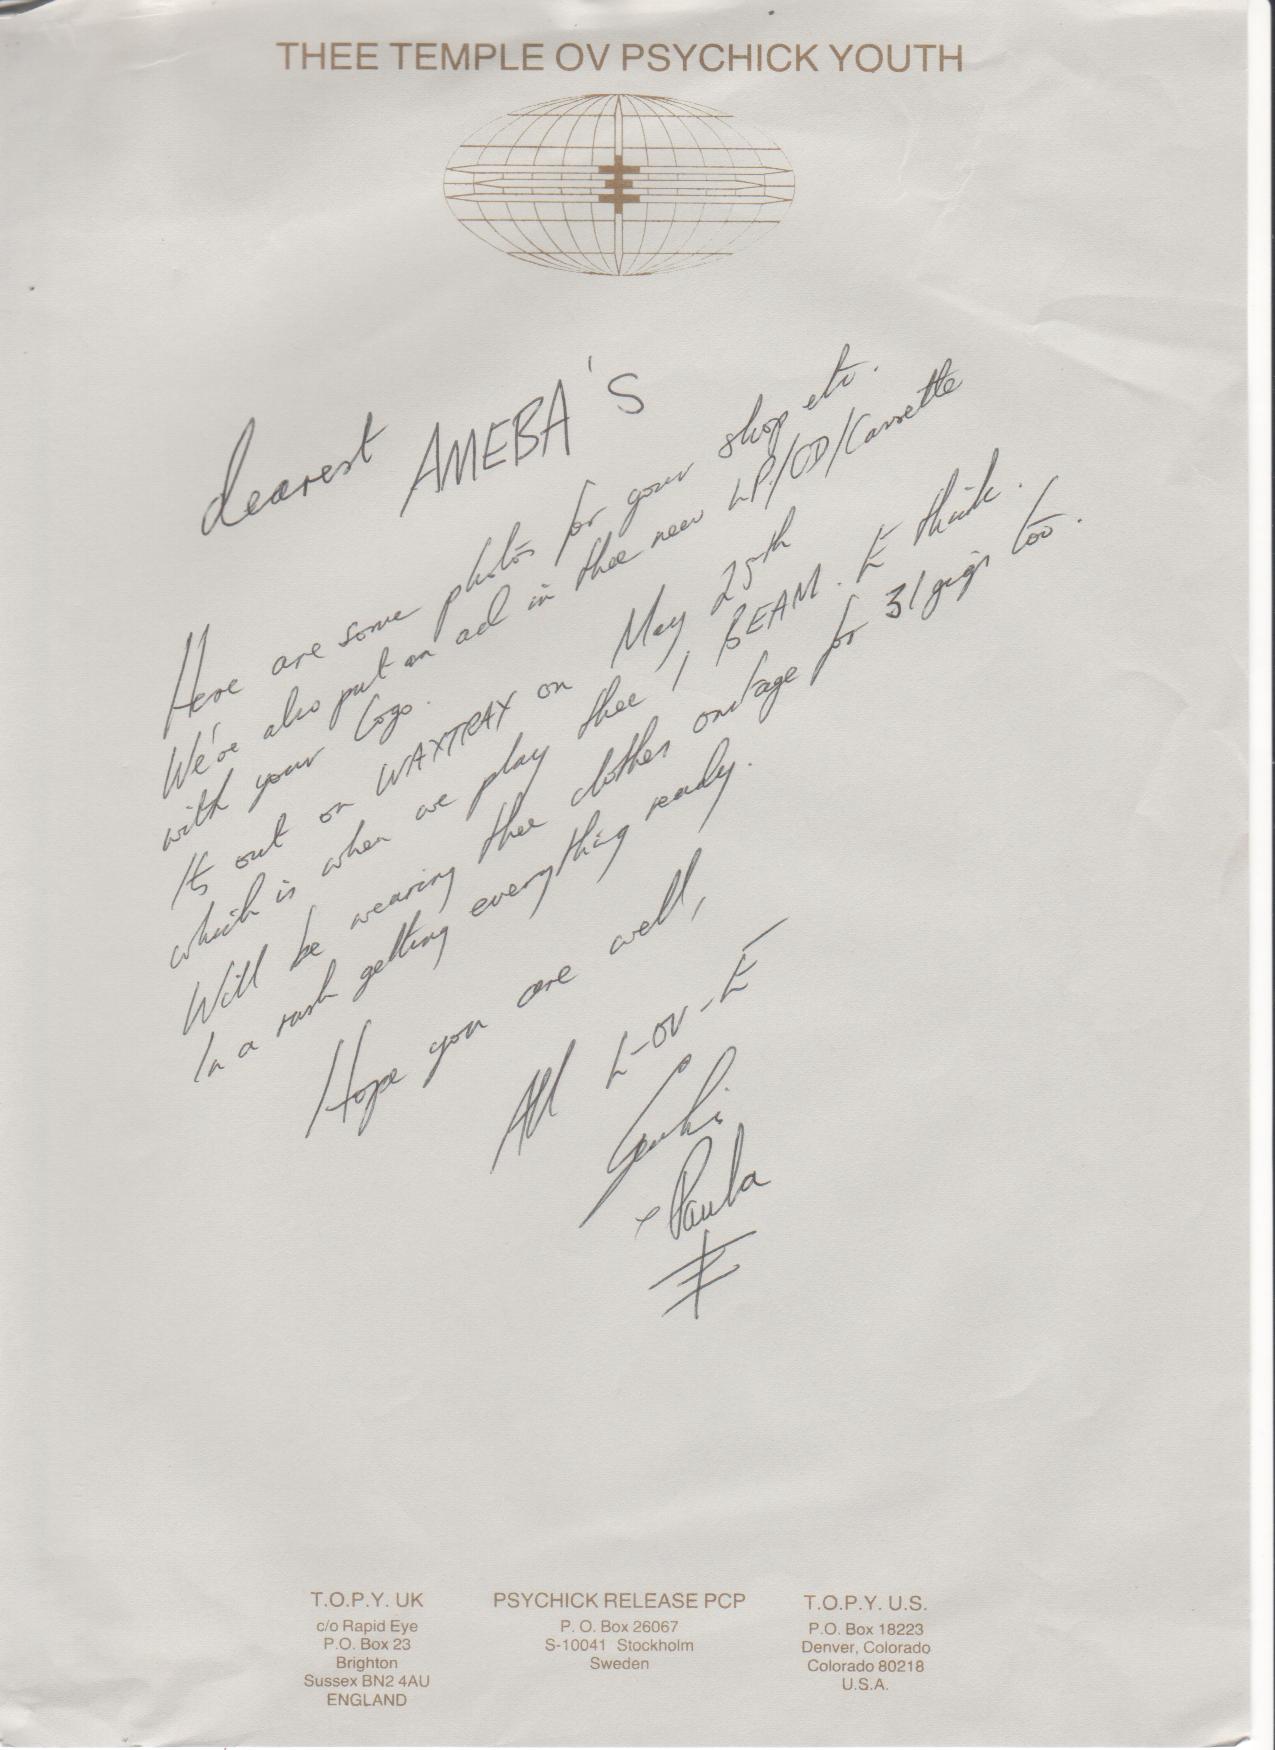 THEE TEMPLE OV PSYCHICK YOUTH
dearest AMEBA'S
Here are some photos for your shop etc.
We've also put an ad in thee new LP/CD/Cassette
with your logo.
Its out on WAXTRAX on May 25th
which is when we play thee I BEAM. E think.
Will be wearing thee clothes onstage for 31 gigs too.
In a rush getting everything ready.
Hope you are well,
All L-OV-E
Genesis
+ Paula
T.O.P.Y. UK
c/o Rapid Eye
P.O. Box 23
Brighton
Sussex BN2 4AU
ENGLAND
PSYCHICK RELEASE PCP
P. O. Box 26067
S-10041 Stockholm
Sweden
T.O.P.Y. U.S.
P.O. Box 18223
Denver, Colorado
Colorado 80218
U.S.A.